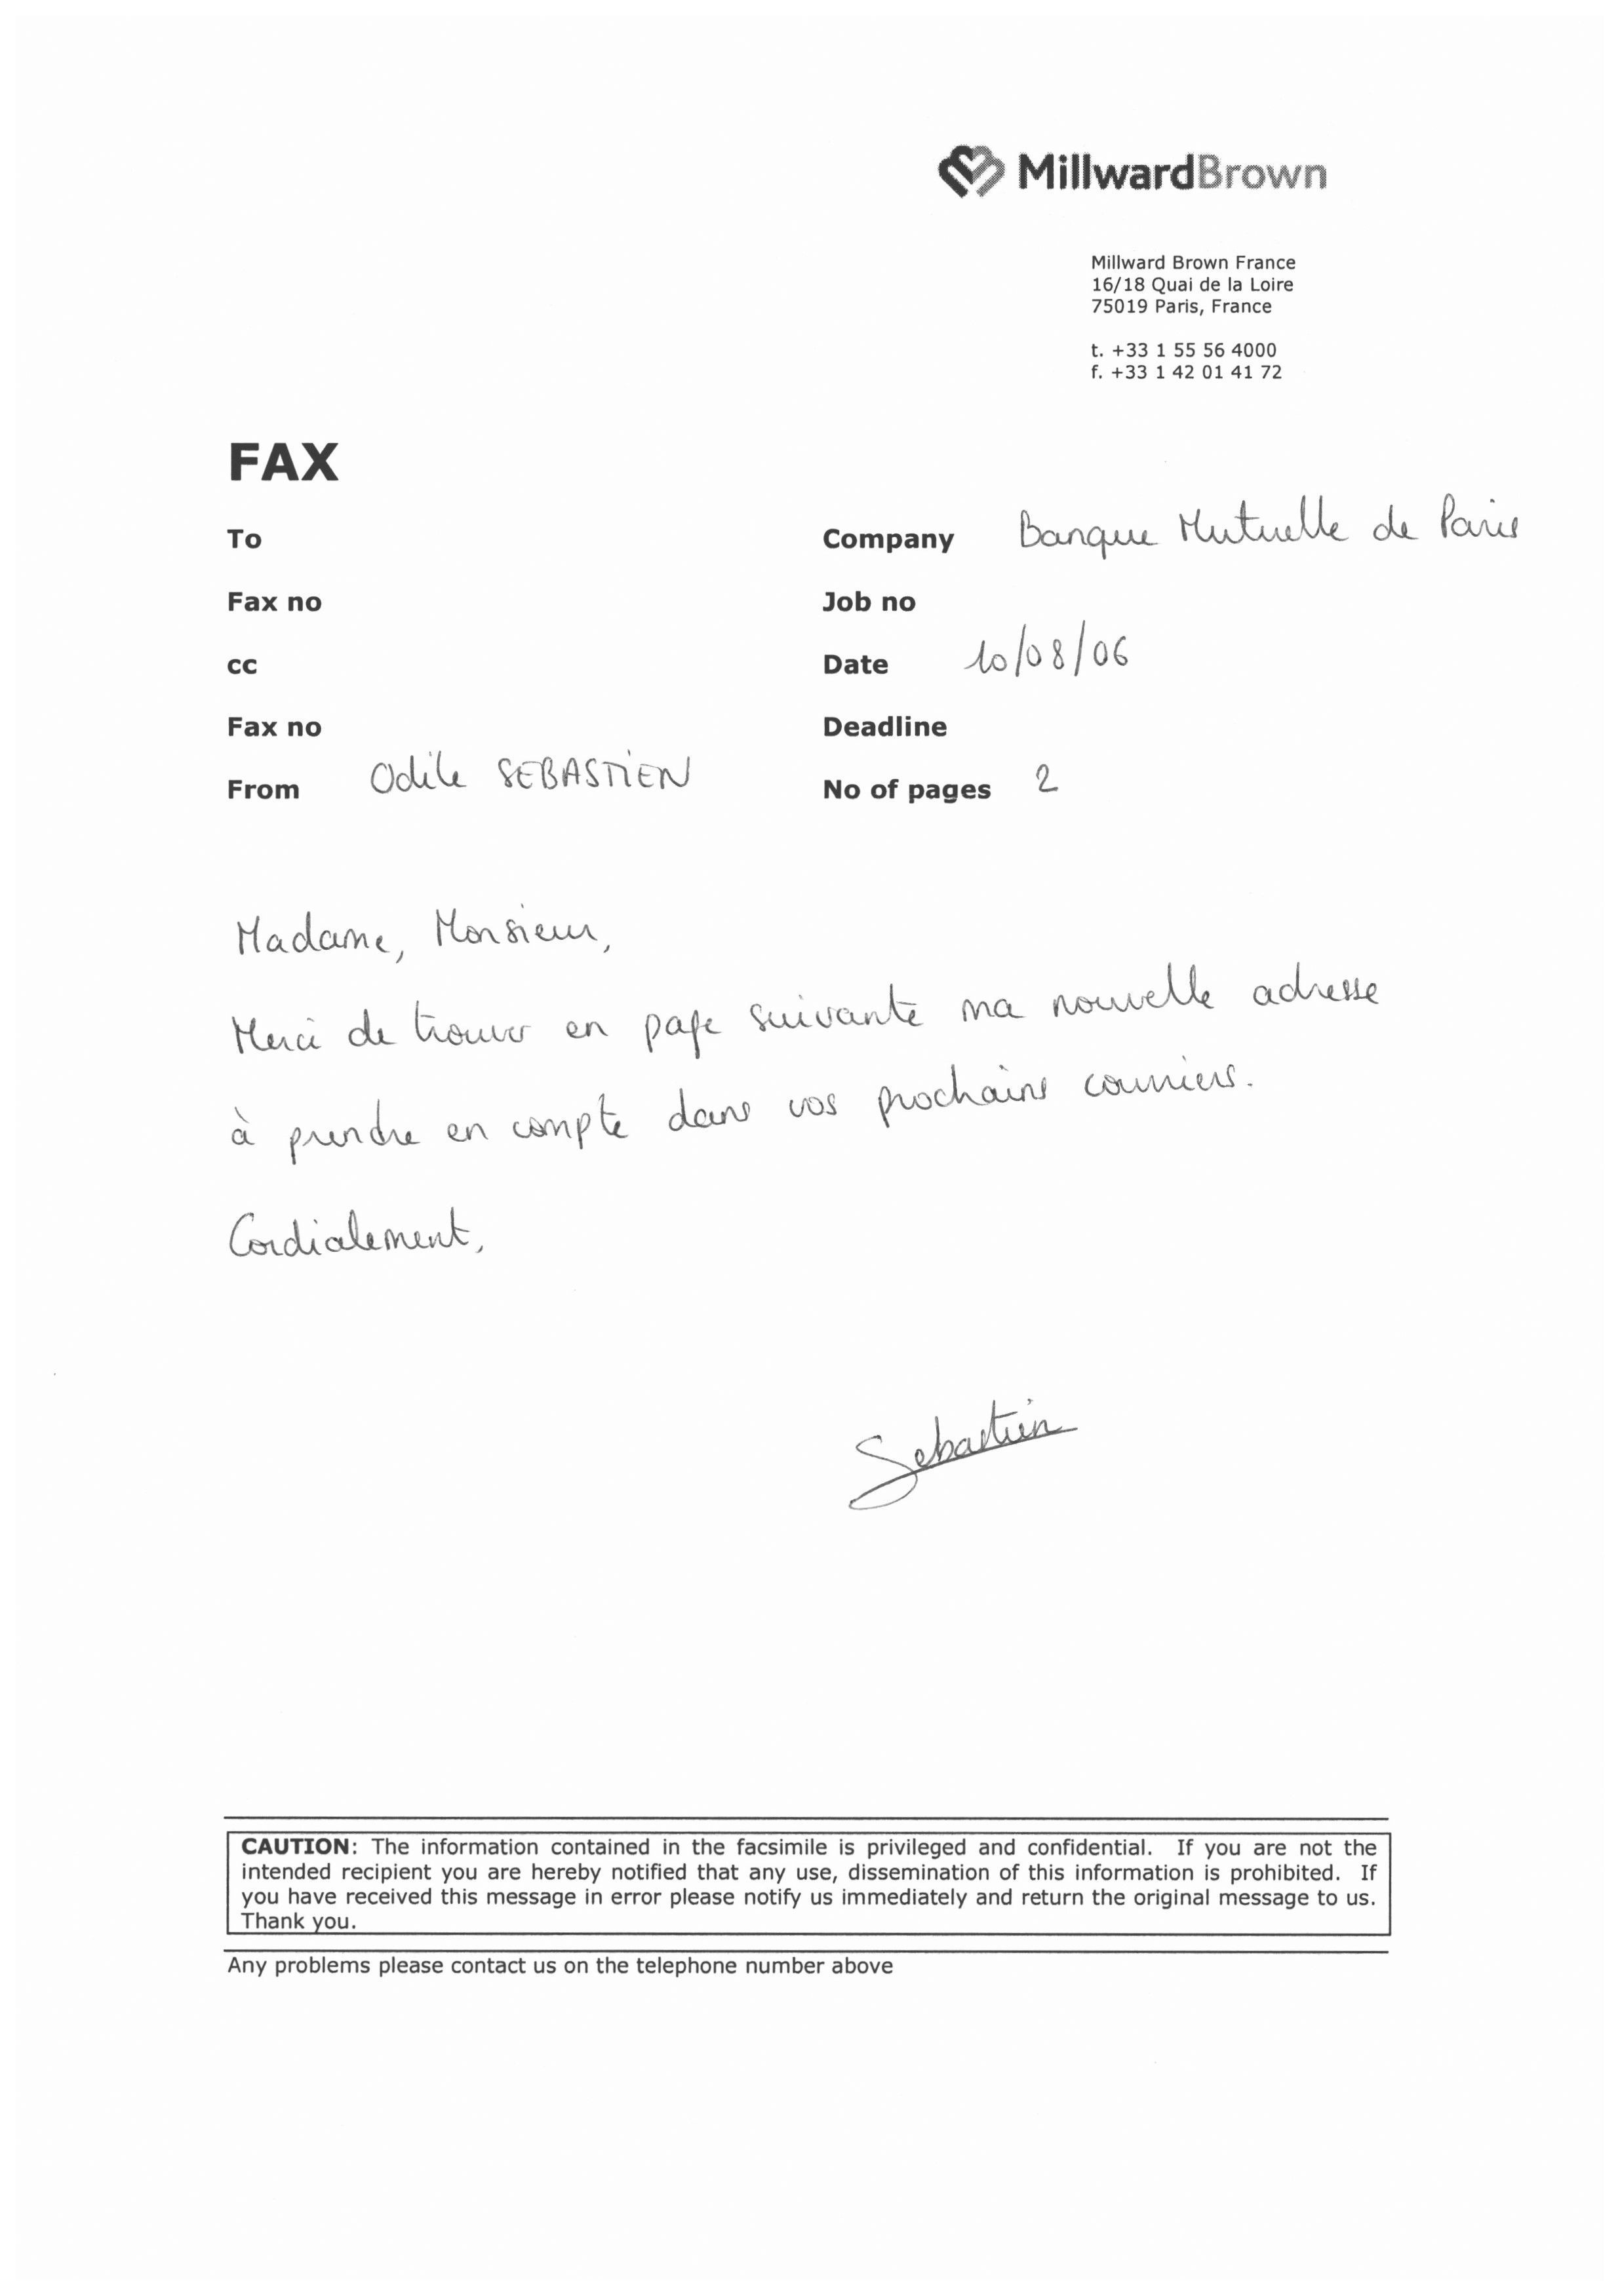 MillwardBrown
Millward Brown France
16/18 Quai de la Loire
75019 Paris, France
t. +33 1 55 56 4000
f. +33 1 42 01 41 72
FAX
To
Company Banque Mutuelle de Paris
Fax no
Job no
cc
Date 10/08/06
Fax no
Deadline
From Odile SEBASTIEN
No of pages 2
Madame, Monsieur,
Merci de trouver en page suivante ma nouvelle adresse
à prendre en compte dans vos prochains courriers.
Cordialement,
Sebastien
CAUTION: The information contained in the facsimile is privileged and confidential. If you are not the
intended recipient you are hereby notified that any use, dissemination of this information is prohibited. If
you have received this message in error please notify us immediately and return the original message to us.
Thank you.
Any problems please contact us on the telephone number above